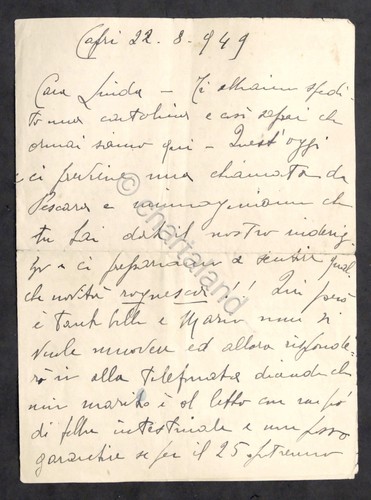 Capri 22. 8. 949
Cara Linda — Ti abbiamo spedi-
to una cartolina e così sapai che
ormai siamo qui — Quest'oggi
ci perviene una chiamata da
Pescara e immaginiamo che
tu hai dato il nostro indiriz-
zo e ci prepariamo a sentire qual-
che novità rognesca!! Qui però
è tanto bello e Mario non si
vuole muovere ed allora risponde-
rò io alla telefonata dicendo che
mio marito è al letto con un po'
di febbre intestinale e non posso
garantire se per il 25 potremo
© Chartaland